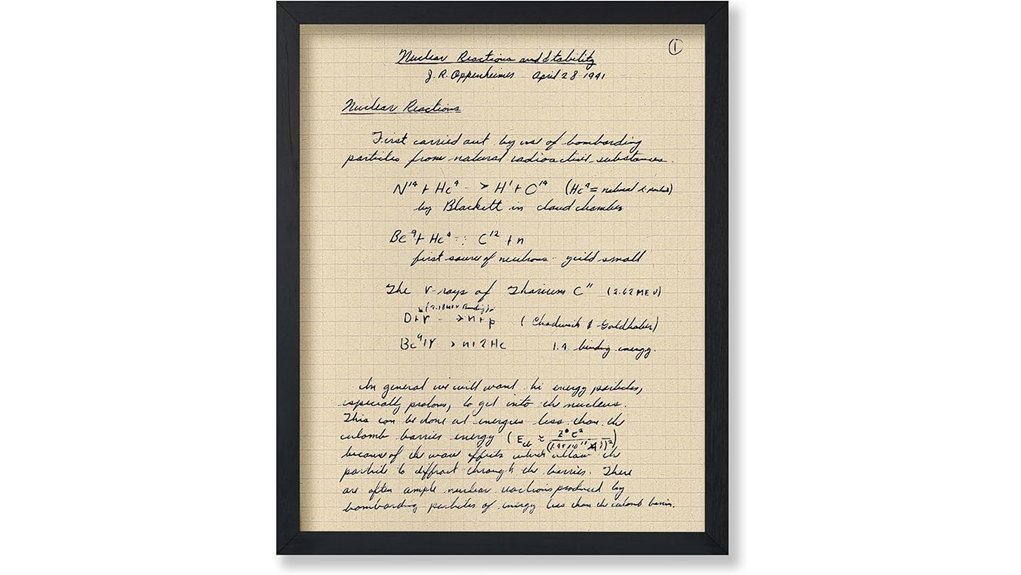 1
Nuclear Reactions and Stability
J. R. Oppenheimer April 28 1941
Nuclear Reactions
First carried out by use of bombarding
particles from natural radioactive substances.
N¹⁴ + He⁴ -> H¹ + O¹⁷ (He⁴ = natural α particles)
by Blackett in cloud chamber
Be⁹ + He⁴ C¹² + n
first source of neutrons yield small
The γ-rays of Thorium C" (2.62 MEV)
D + γ -> n + p (Chadwick & Goldhaber)
Be⁹ + γ > n + 2 He binding energy.
In general we will want hi energy particles,
especially protons, to get into the nucleus.
This can be done at energies less than the
culomb barrier energy
because of the wave effects which allow the
particle to diffract through the barrier. There
are often ample nuclear reactions produced by
bombarding particles of energy less than the culomb barrier.